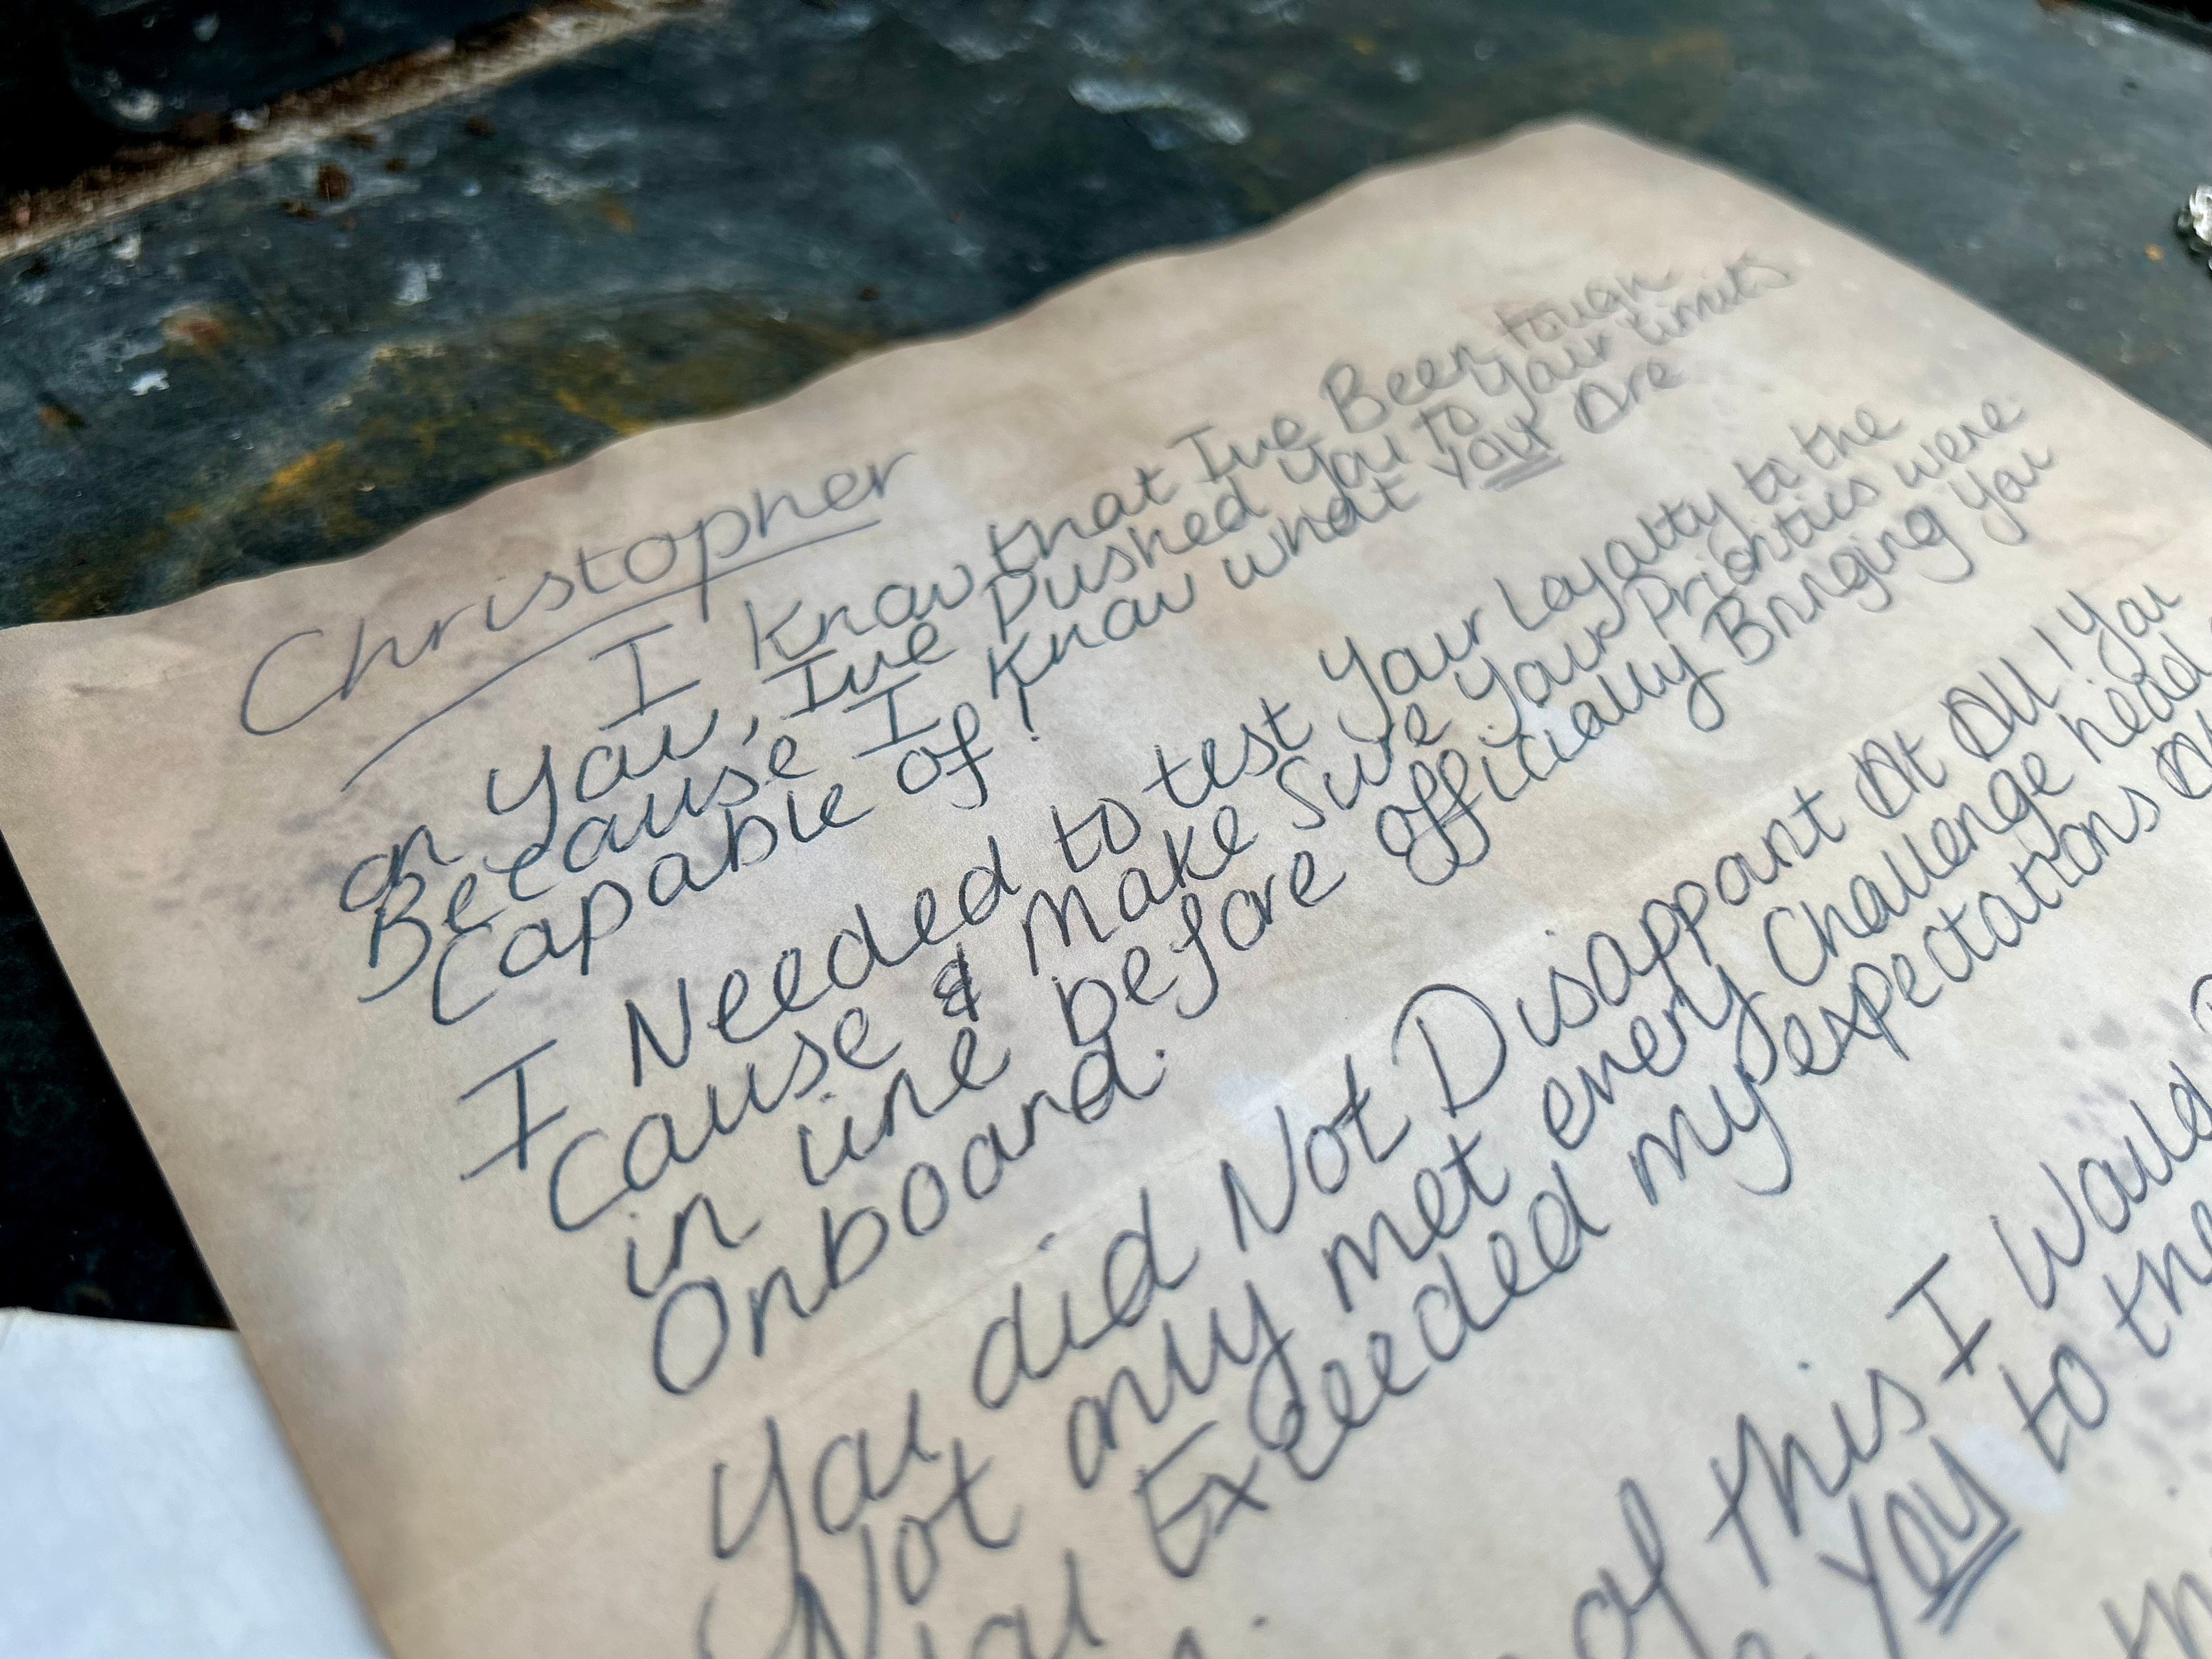 Christopher
I know that Ive Been tough
on you, Ive Pushed you to your limits
Because I know what you Are
Capable of!
I Needed to test your Loyalty to the
Cause & Make Sure your Priorities were
in line before officially Bringing you
Onboard.
You did Not Disappoint At All! You
Not only met every Challenge head
Exceeded my expectations
of this I Would
you to the